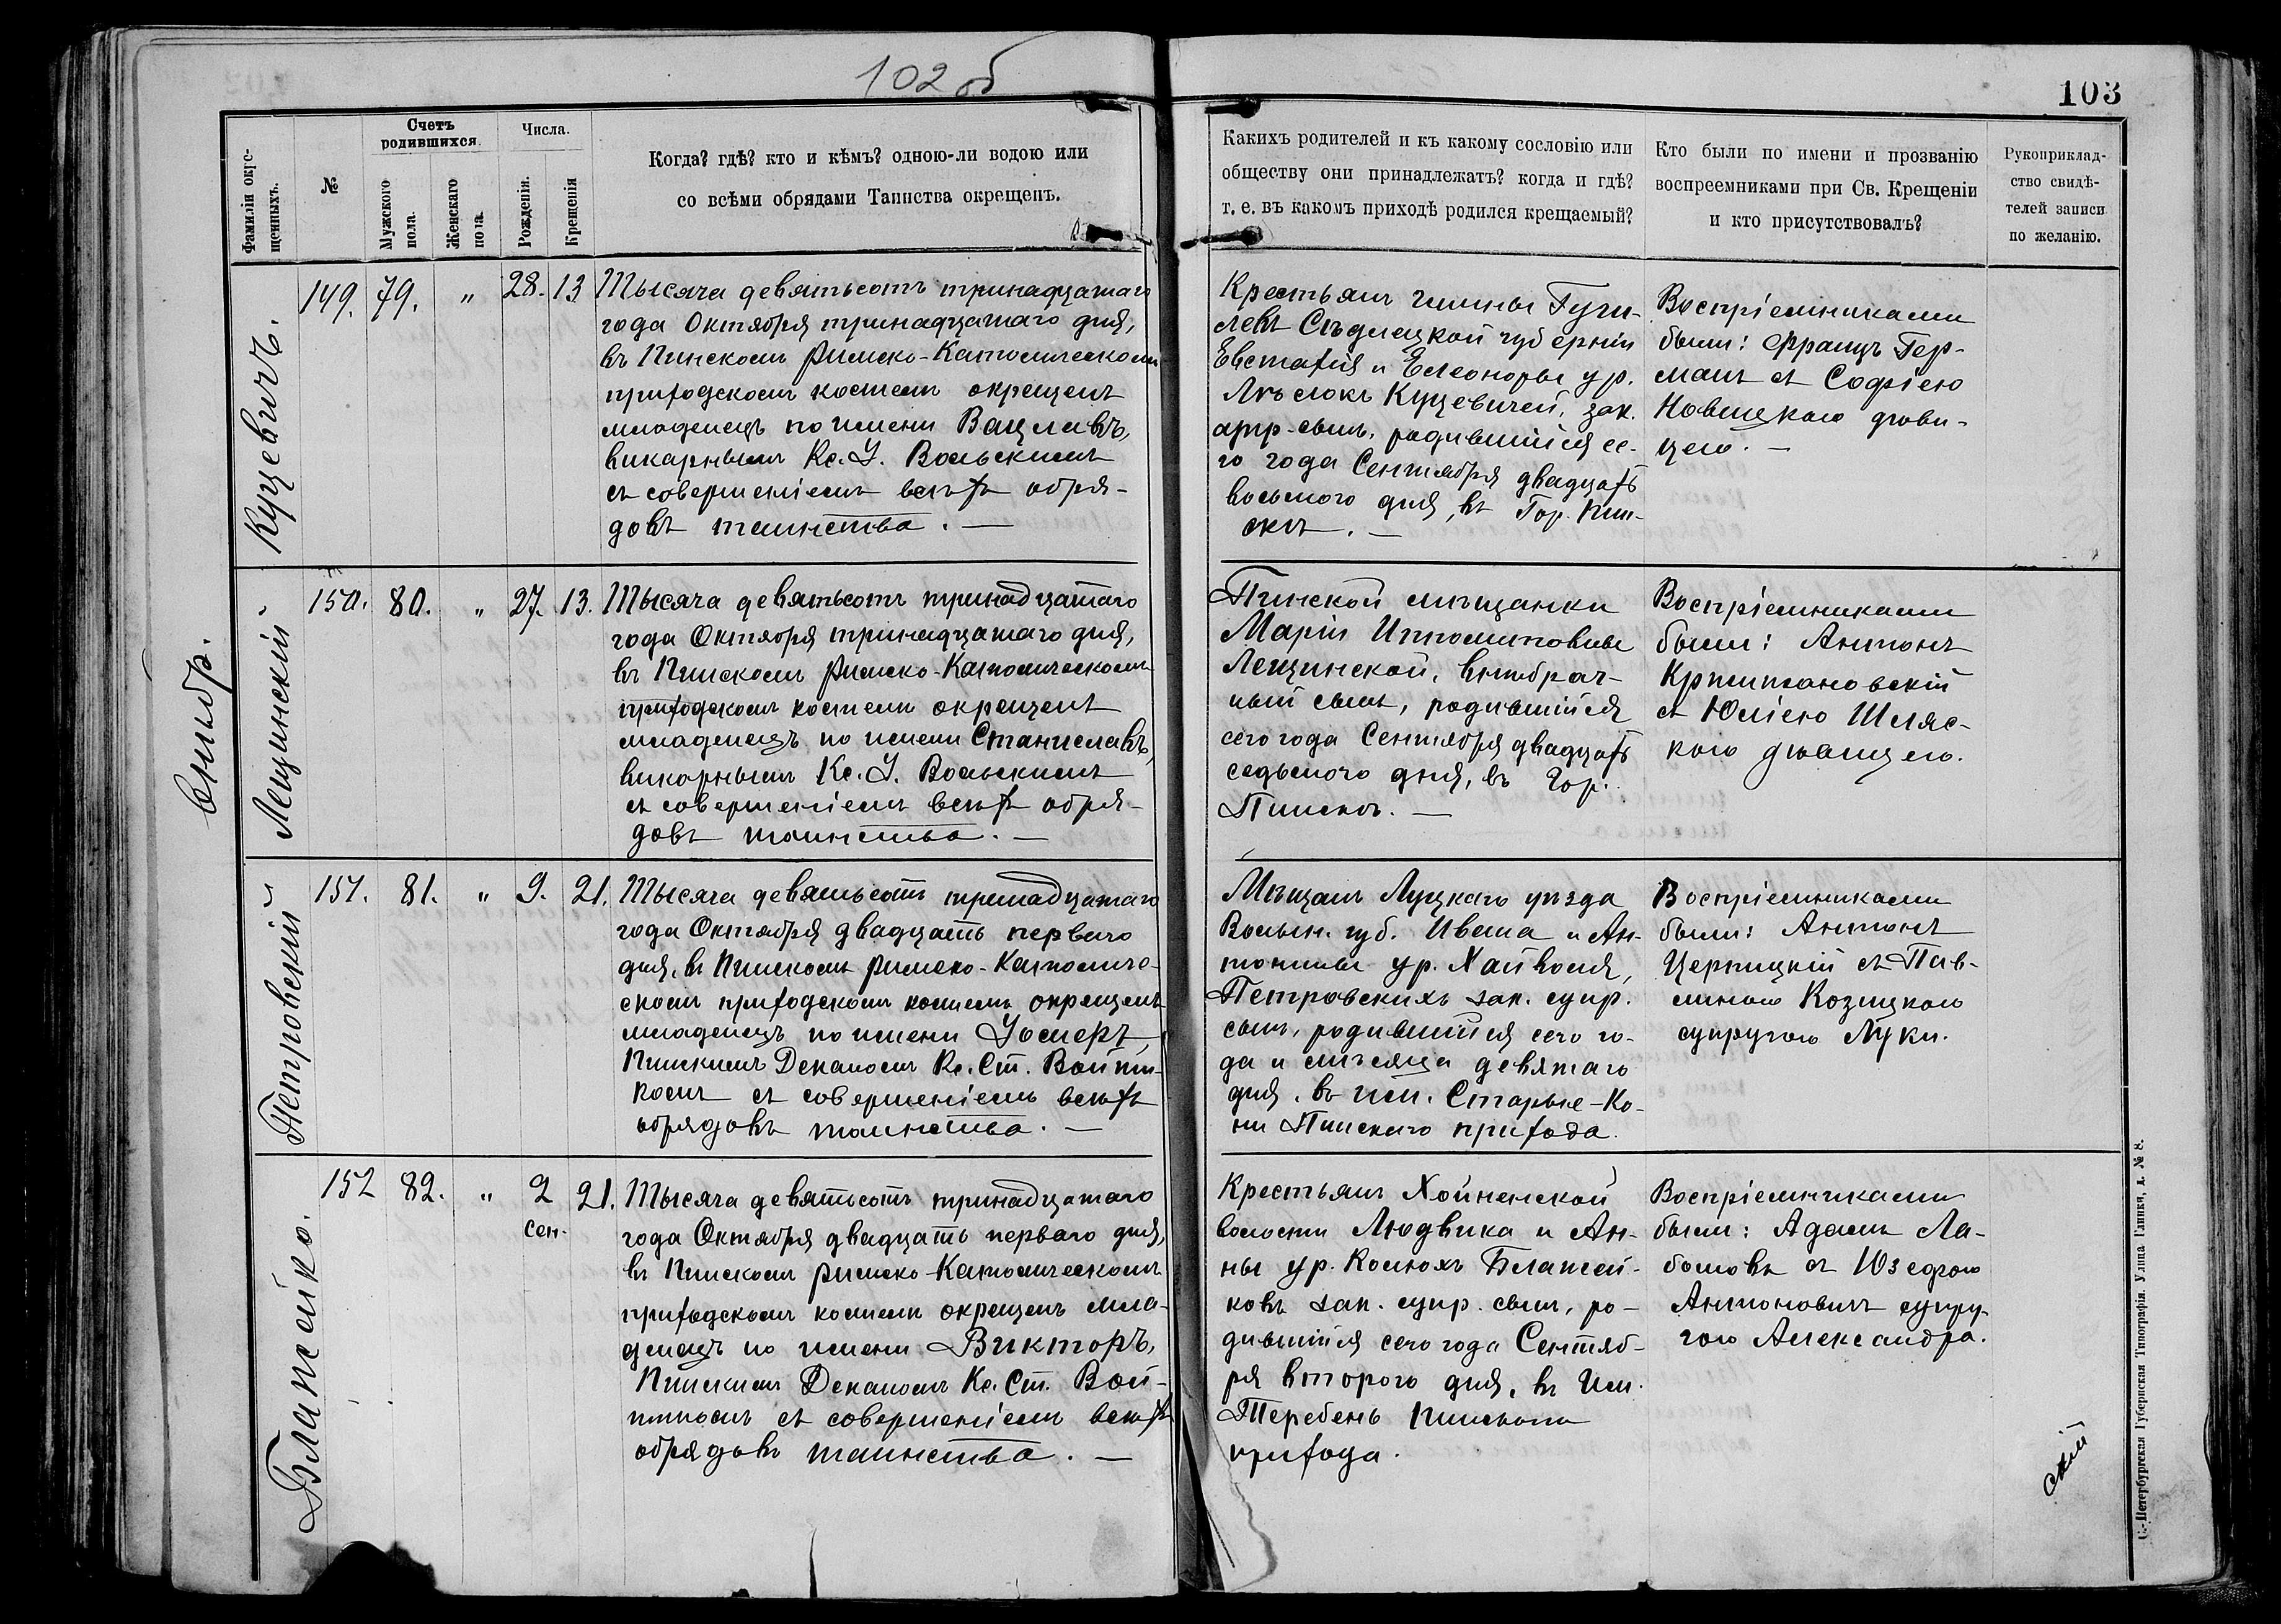 102 об
103
Фамиліи окре-
щенныхъ.
№
Счетъ
родившихся.
Мужского
пола.
Женскаго
пола.
Числа.
Рожденія.
Крещенія
Когда? гдѣ? кто и кѣмъ? одною-ли водою или
со всѣми обрядами Таинства окрещенъ.
Какихъ родителей и къ какому сословію или
обществу они принадлежатъ? когда и гдѣ?
т. е. въ какомъ приходѣ родился крещаемый?
Кто были по имени и прозванію
воспреемниками при Св. Крещеніи
и кто присутствовалъ?
Рукоприклад-
ство свидѣ-
телей записи
по желанію.
внибр.
Куцевичъ.
149. 79. " 28. 13
Тысяча девятьсотъ тринадцатаго
года Октября тринадцатаго дня,
въ Пинскомъ Римско-Католическомъ
приходскомъ костелѣ окрещенъ
младенецъ по имени Вацлавъ,
викарнымъ Кс. У. Вольскимъ
съ совершеніемъ всѣхъ обря-
довъ таинства. —
Крестьянъ гмины
Сѣдлецкой губерніи
Евстафія и Елеоноры ур.
Куцевичей, зак.
сынъ, родившійся се-
го года Сентября двадцать
восьмого дня, въ Гор. Пин-
скѣ. —
Воспріемниками
были: Францъ Гер-
манъ съ Софіею
Новицкою дѣви-
цею. —
Лещинскій
150. 80. " 27. 13.
Тысяча девятьсотъ тринадцатаго
года Октября тринадцатаго дня,
въ Пинскомъ Римско-Католическомъ
приходскомъ костелѣ окрещенъ
младенецъ по имени Станиславъ,
викарнымъ Кс. У. Вольскимъ
съ совершеніемъ всѣхъ обря-
довъ таинства. —
Пинской мѣщанки
Маріи Ипполитовны
Лещинской, внѣбрач-
ный сынъ, родившійся
сего года Сентября двадцать
седьмого дня, въ Гор.
Пинскѣ. —
Воспріемниками
были: Антонъ
Кржижановскій
съ Юліею Шляс-
кою дѣвицею.
Петровскій
151. 81. " 9. 21.
Тысяча девятьсотъ тринадцатаго
года Октября двадцать перваго
дня, въ Пинскомъ Римско-Католиче-
скомъ приходскомъ костелѣ окрещенъ
младенецъ по имени
Пинскимъ Деканомъ Кс. Ст. Войти-
комъ съ совершеніемъ всѣхъ
обрядовъ таинства. —
Мѣщанъ Луцкаго уѣзда
Волын. губ. Ивана и Ан-
тонины ур.
Петровскихъ зак. супр.
сынъ, родившійся сего го-
да и мѣсяца девятаго
дня, въ им. Старые-Ко-
ни Пинскаго прихода.
Воспріемниками
были: Антонъ
Церпицкій съ Пав-
линою Козицкою
супругою Луки.
Блажейко.
152 82. " 2 21.
сен.
Тысяча девятьсотъ тринадцатаго
года Октября двадцать перваго дня,
въ Пинскомъ Римско-Католическомъ
приходскомъ костелѣ окрещенъ мла-
денецъ по имени Викторъ,
Пинскимъ Деканомъ Кс. Ст. Вой-
тикомъ съ совершеніемъ всѣхъ
обрядовъ таинства. —
Крестьянъ Хойненской
волости Людвика и Ан-
ны ур. Блажей-
ковъ зак. супр. сынъ, ро-
дившійся сего года Сентяб-
ря второго дня, въ Им.
Теребень Пинскаго
прихода.
Воспріемниками
были: Адамъ Ла-
бовъ съ Юзефою
Антоновичъ супру-
гою Александра.
скій
С.-Петербургская Губернская Типографія. Улица Глинки, д. № 8.